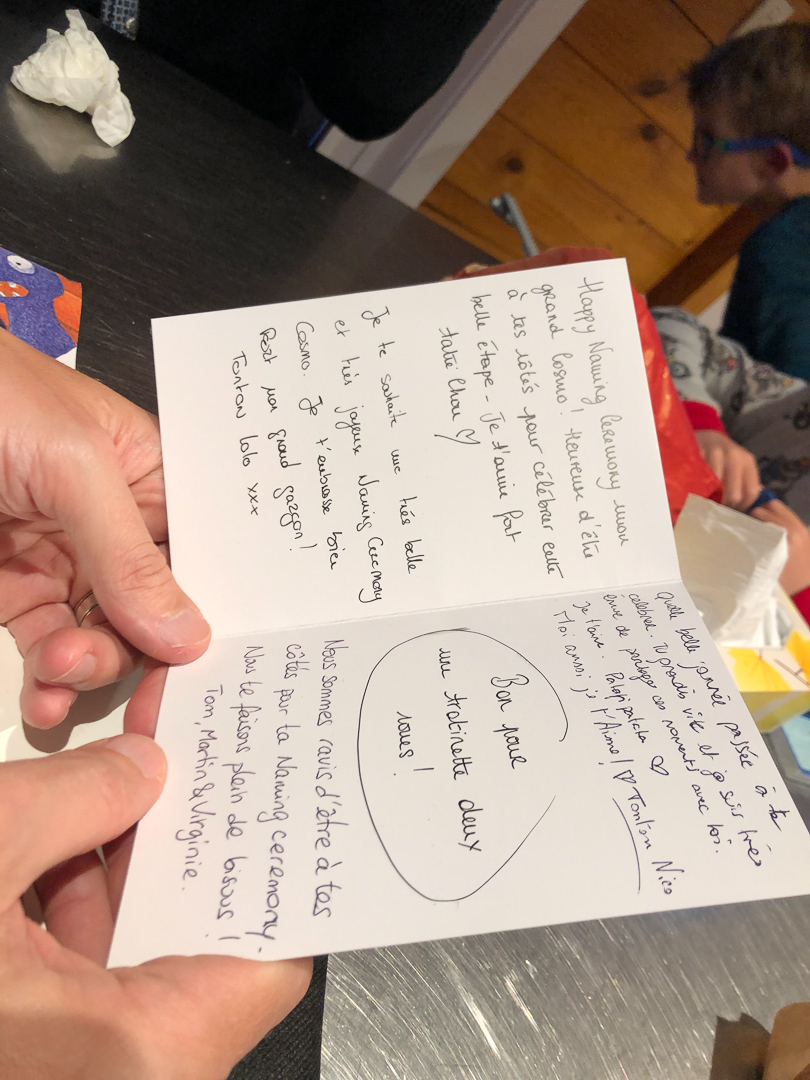 Happy Naming Ceremony mon
grand Cosmo! Heureuse d'être
à tes côtés pour célébrer cette
belle étape - Je t'aime fort
tatie Chou ♡
Je te souhaite une très belle
et très joyeuse Naming Ceremony
Cosmo. Je t'embrasse bien
fort mon grand garçon!
Tonton lolo xxx
Quelle belle journée passée à te
célébrer. Tu grandis vite et je suis très
envie de partager ces moments avec toi.
Je t'aime. Patapipatata ♡
Moi aussi je t'Aime! ♡ Tonton Nico
Bon pour
une trotinette deux
roues!
Nous sommes ravis d'être à tes
côtés pour ta Naming ceremony.
Nous te faisons plein de bisous!
Tom, Martin & Virginie.